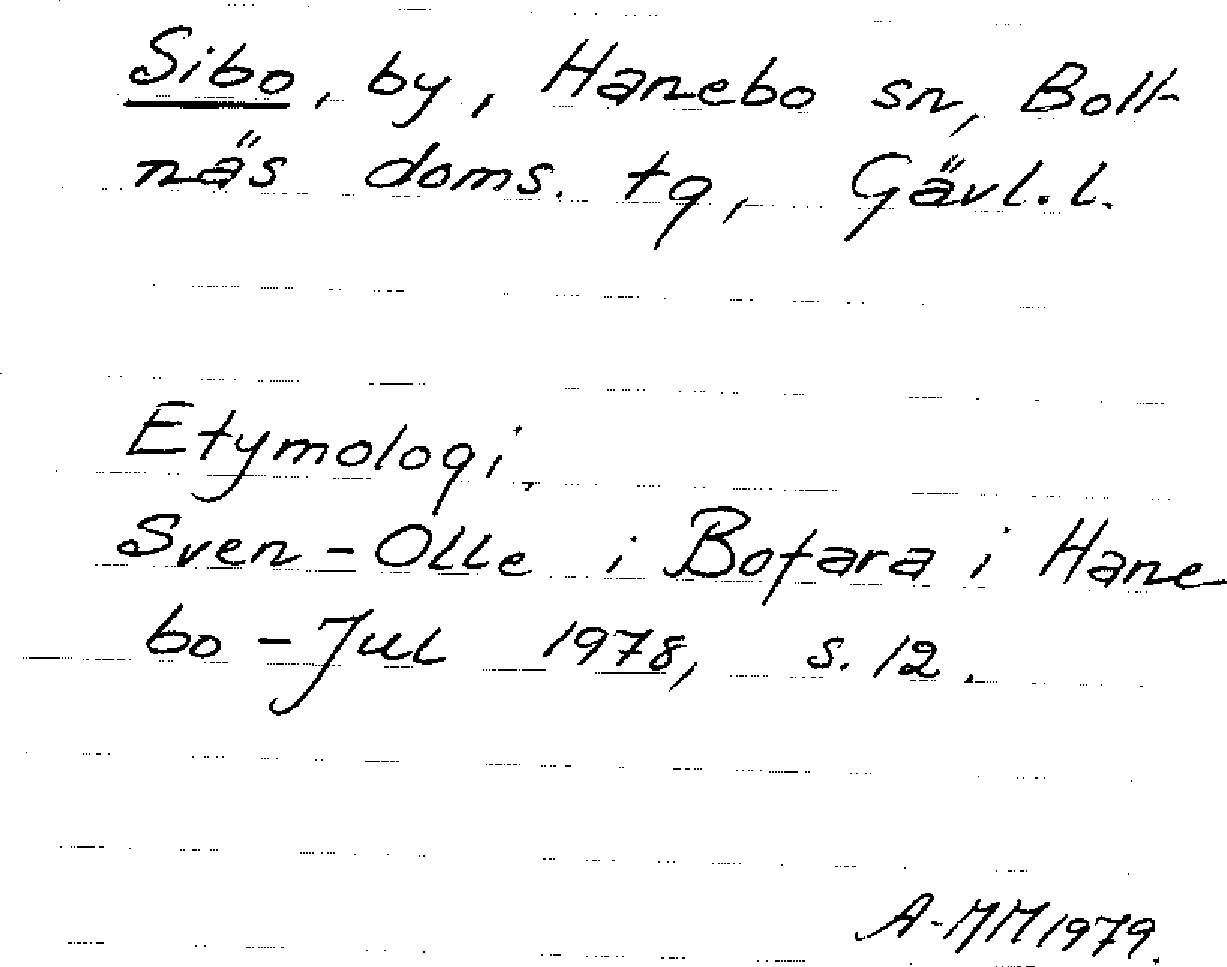 Sibo, by, Hanebo sn, Boll-
näs doms. tg, Gävl. l.
Etymologi.
Sven-Olle i Bofara i Hane
bo-Jul 1978, s. 12.
A-MM 1979.